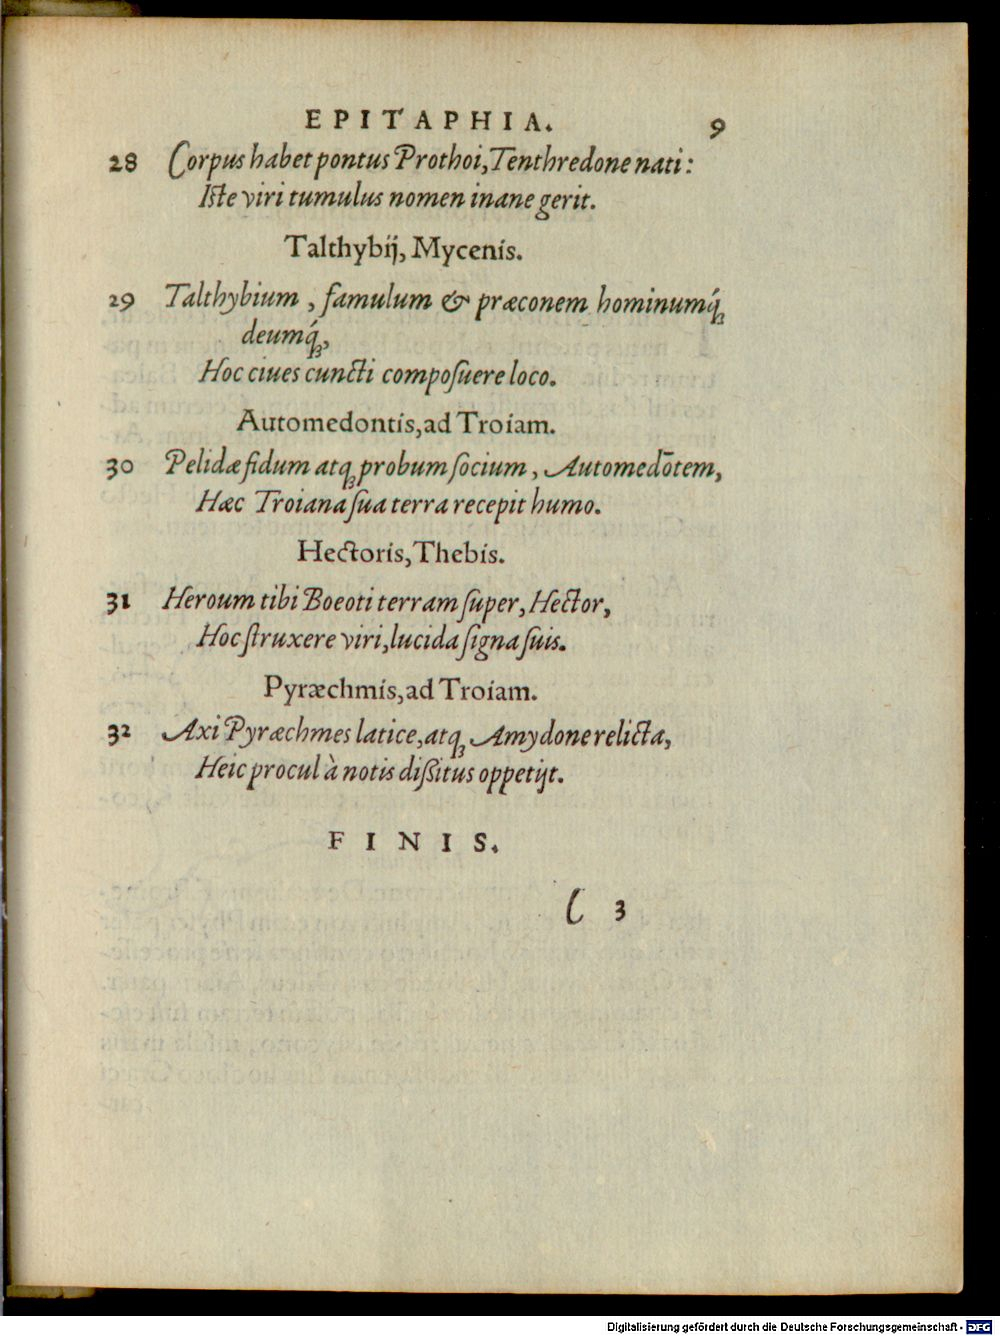 EPITAPHIA. 9
28 Corpus habet pontus Prothoi, Tenthredone nati:
Iste viri tumulus nomen inane gerit.
Talthybij, Mycenis.
29 Talthybium, famulum & præconem hominumq́ꝫ
deumq́ꝫ,
Hoc ciues cuncti composuere loco.
Automedontis, ad Troiam.
30 Pelidæ fidum atqꝫ probum socium, Automedōtem,
Hæc Troiana sua terra recepit humo.
Hectoris, Thebis.
31 Heroum tibi Boeoti terram super, Hector,
Hoc struxere viri, lucida signa suis.
Pyræchmis, ad Troiam.
32 Axi Pyræchmes latice, atqꝫ Amydone relicta,
Heic procul à notis dißitus oppetijt.
FINIS.
C 3
Digitalisierung gefördert durch die Deutsche Forschungsgemeinschaft - DFG